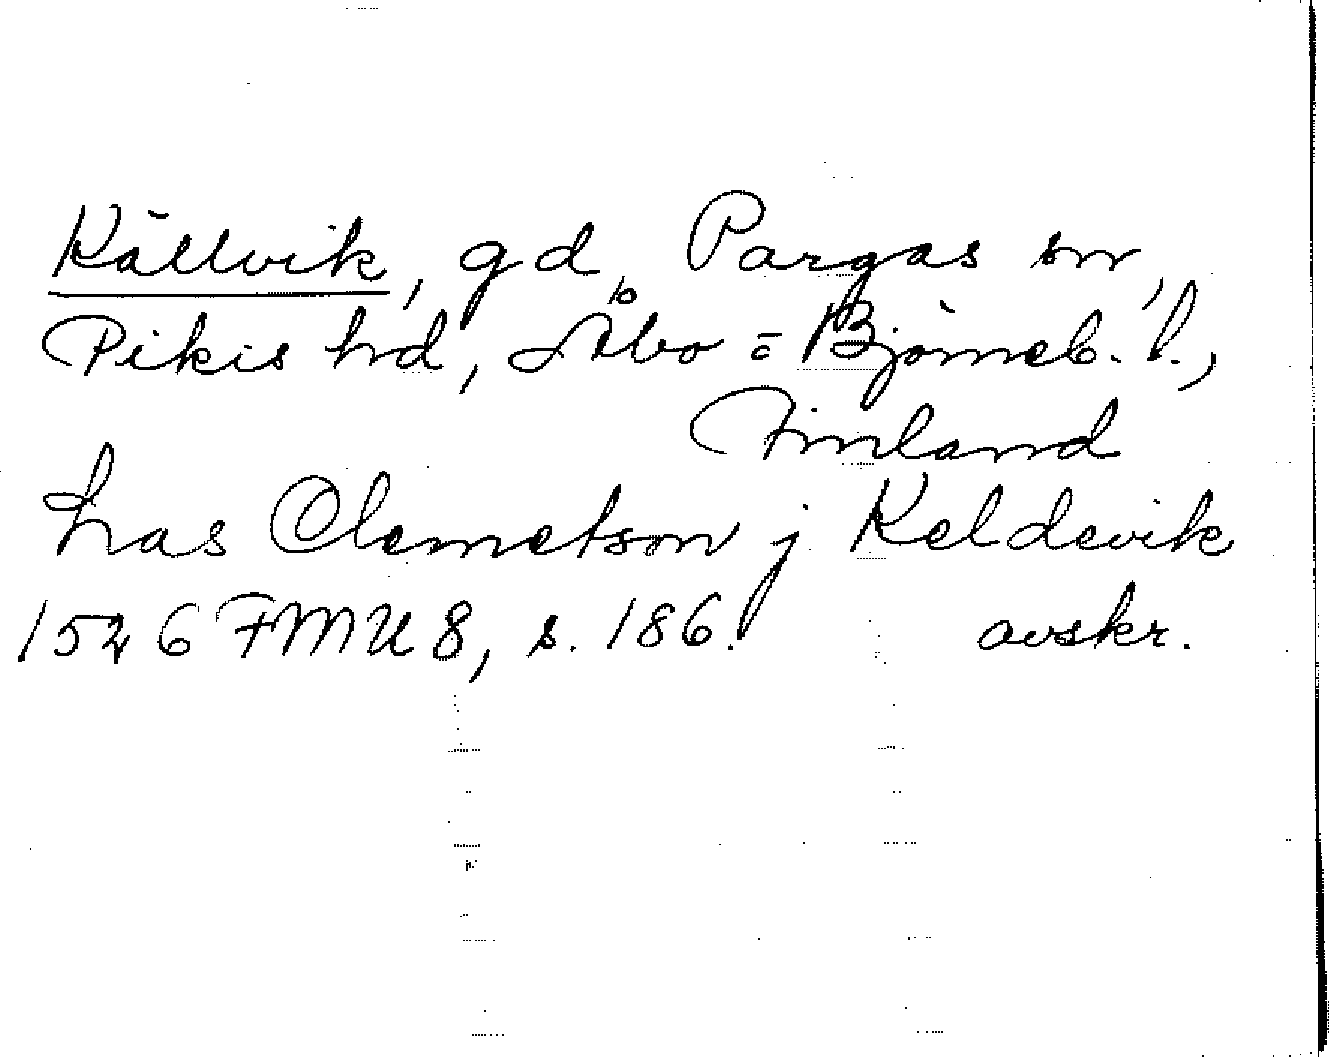 Källvik, gd, Pargas sn,
Pikis hd, Åbo = Björneb. l.,
Finland
Las Clemetson j Keldevik
1526 FMU 8, s. 186. avskr.